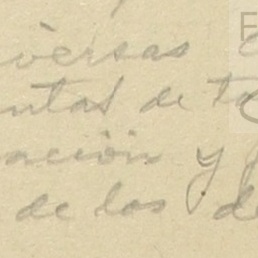 iversas
ntas de
ación y
de los de